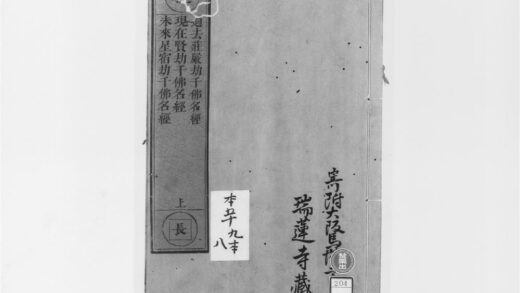 過去莊嚴劫千佛名經
現在賢劫千佛名經
未來星宿劫千佛名經
上
長
寄附大阪
瑞蓮寺藏
204